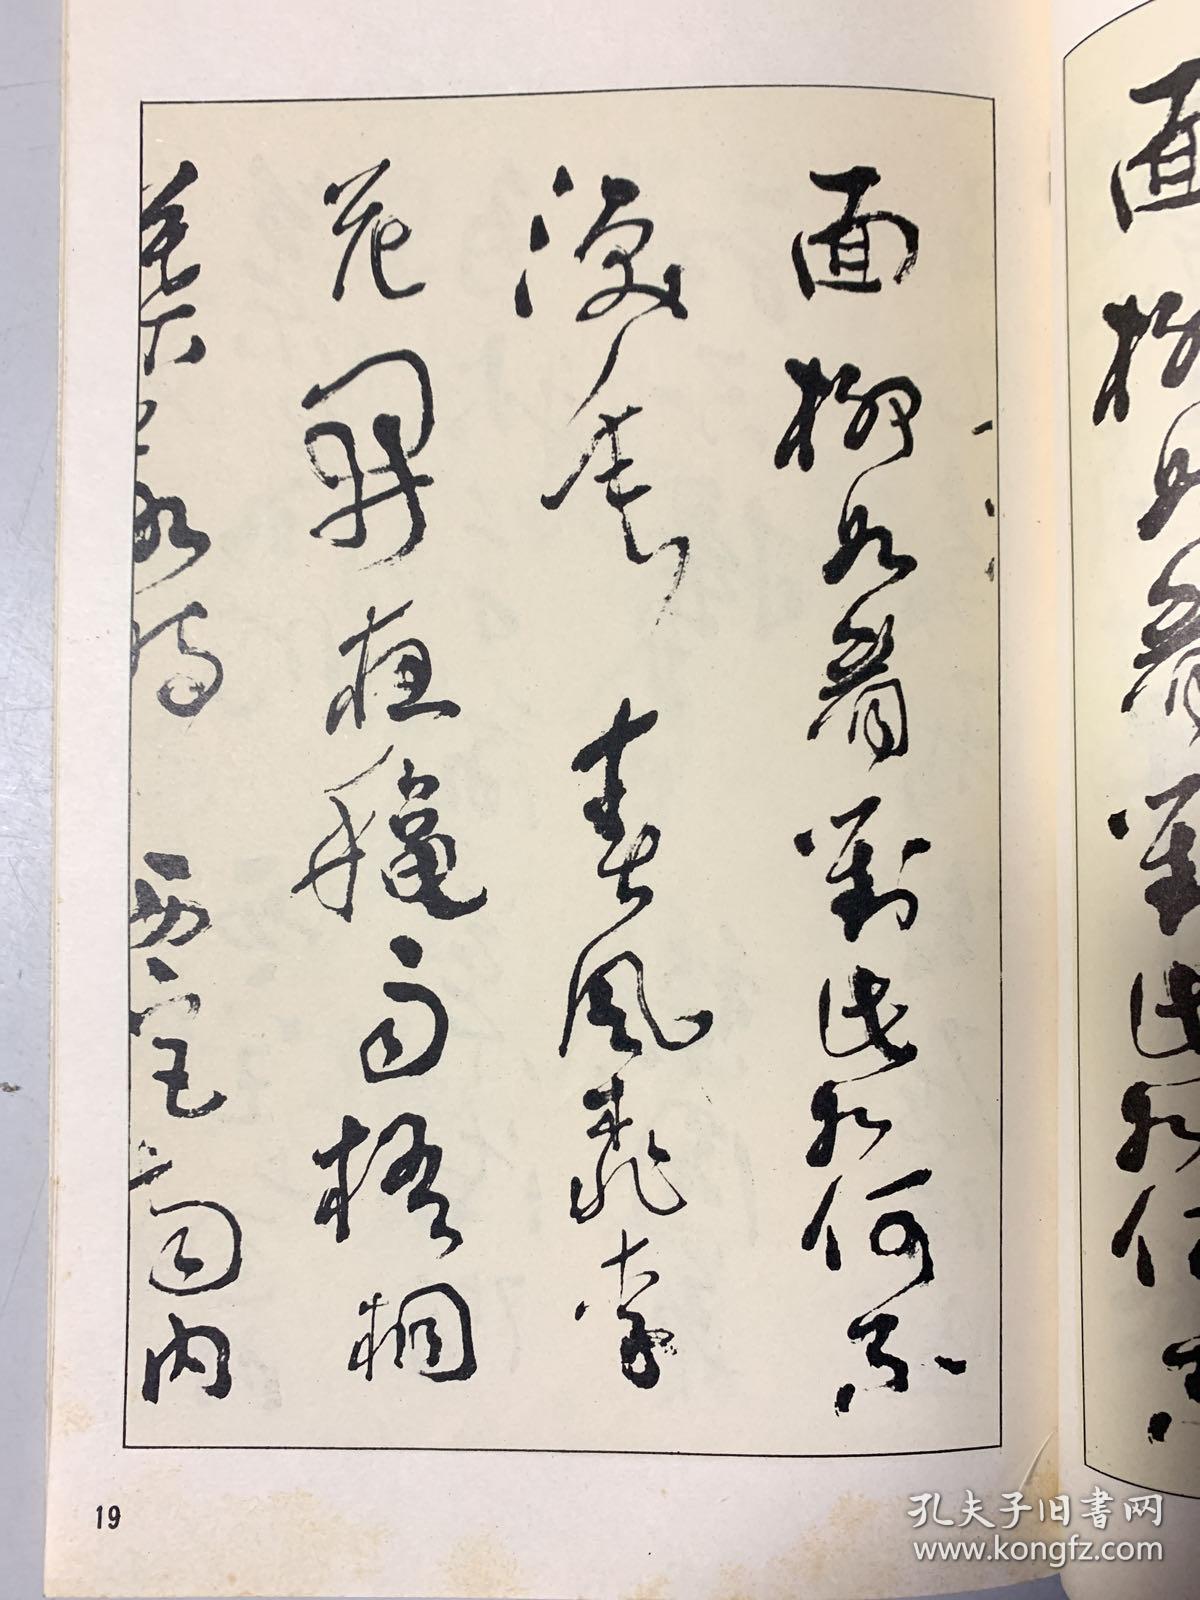 面柳如眉對此如何不
淚垂春風桃李
花開夜秋雨梧桐
葉落時西宮南內
19
孔夫子旧书网
www.kongfz.com